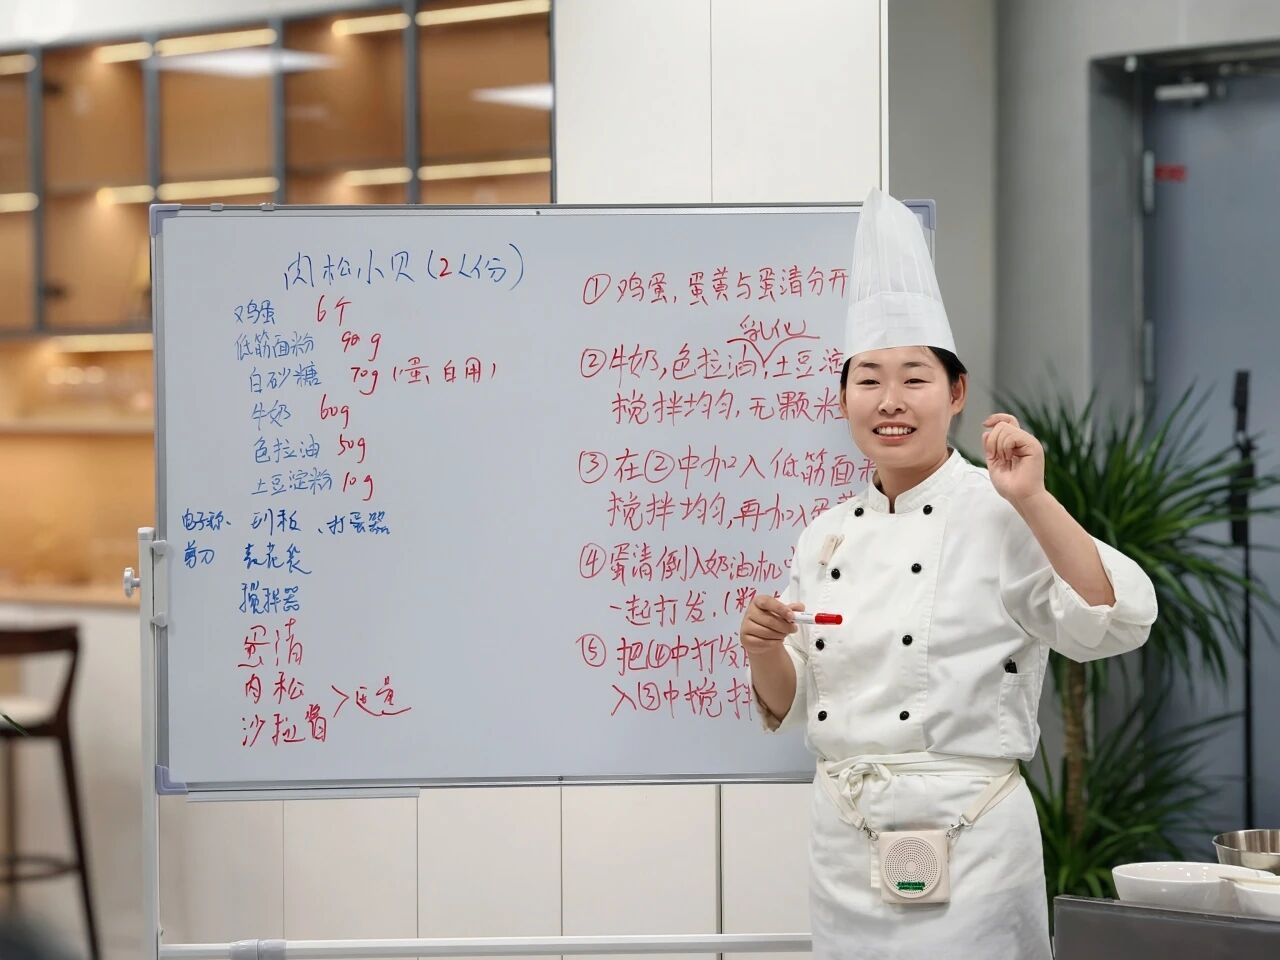 肉松小贝(2人份)
鸡蛋 6个
低筋面粉 90g
白砂糖 70g(蛋白用)
牛奶 60g
色拉油 50g
土豆淀粉 10g
电子称、刮板、打蛋器
剪刀 裱花袋
搅拌器
蛋清
肉松
沙拉酱 >适量
①鸡蛋,蛋黄与蛋清分开
乳化
②牛奶,色拉油,土豆淀
搅拌均匀,无颗粒
③在②中加入低筋面粉
搅拌均匀,再加入蛋黄
④蛋清倒入奶油机中
一起打发.(
⑤把④中打发
入③中搅拌